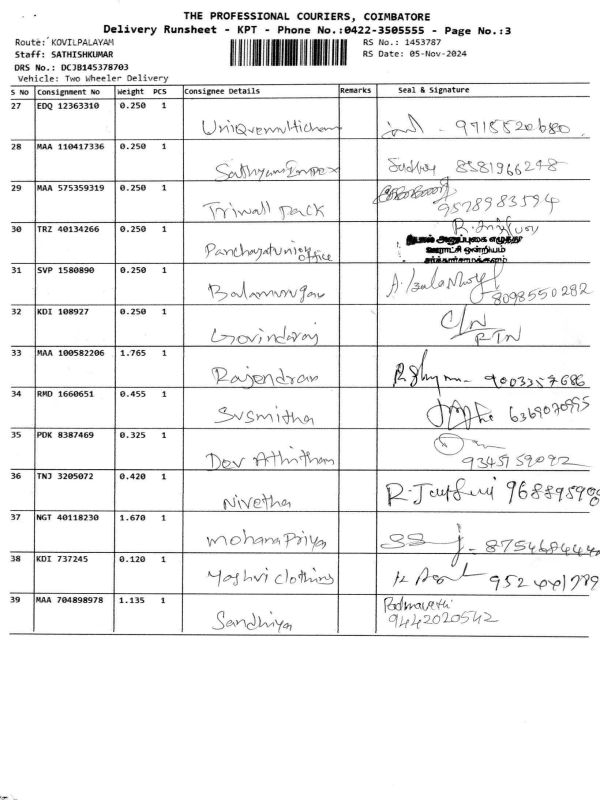 THE PROFESSIONAL COURIERS, COIMBATORE
Delivery Runsheet - KPT - Phone No.:0422-3505555 - Page No.:3
Route: KOVILPALAYAM RS No.: 1453787
Staff: SATHISHKUMAR RS Date: 05-Nov-2024
DRS No.: DCJB145378703
Vehicle: Two Wheeler Delivery
S No Consignment No Weight PCS Consignee Details Remarks Seal & Signature
27 EDQ 12363310 0.250 1
9715520680
28 MAA 110417336 0.250 1
Sathyam Impex 8581966248
29 MAA 575359319 0.250 1
Triwall pack 9578983594
30 TRZ 40134266 0.250 1
Panchayat union office
ஊராட்சி ஒன்றியம்
31 SVP 1580890 0.250 1
Balamurugan 8098550282
32 KDI 108927 0.250 1
Govindaraj C/N
RTN
33 MAA 100582206 1.765 1
Rajendran 9003357686
34 RMD 1660651 0.455 1
Susmitha 6369070995
35 PDK 8387469 0.325 1
Dev Athitham 9345159092
36 TNJ 3205072 0.420 1
Nivetha
37 NGT 40118230 1.670 1
Mohana Priya
38 KDI 737245 0.120 1
Yashvi clothing
39 MAA 704898978 1.135 1
Sandhiya Padmavathi
9442020542